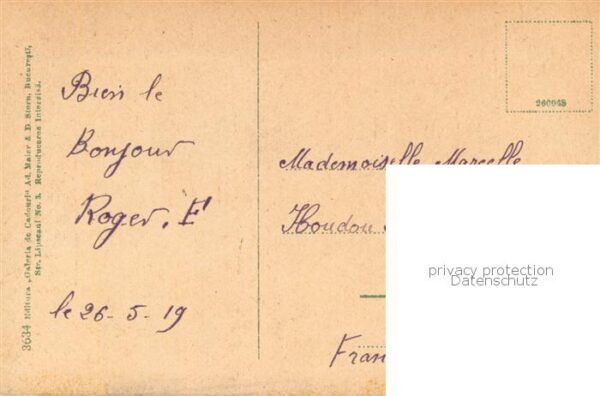 3634 Editura „Galeria de Cadouri“ Ad. Maier & D. Stern, Bucureşti,
Str. Lipscani No. 3. Reproducerea Interzisă.
Bien le
Bonjour
Roger. F
le 26-5-19
Mademoiselle Marcelle
Houdou
Fran
privacy protection
Datenschutz